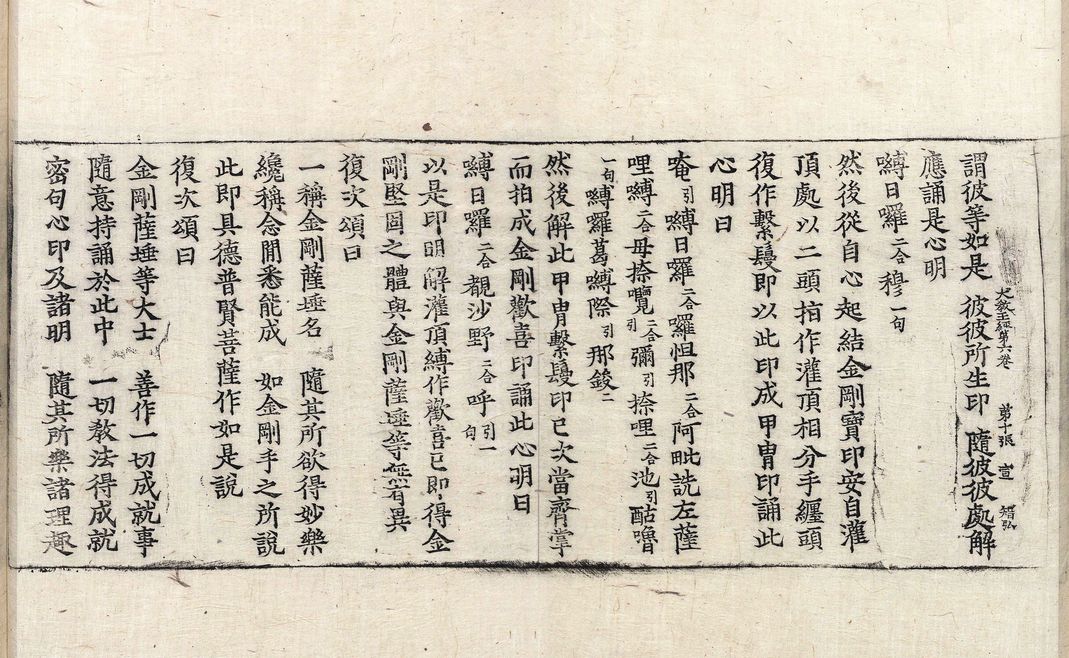 謂彼等如是 彼彼所生印 隨彼彼處解
大教王經第六卷 第十張 宣 智弘
應誦是心明
縛日囉二合穆一句
然後從自心起結金剛寶印安自灌
頂處以二頭指作灌頂相分手纏頭
復作繫鬘即以此印成甲冑印誦此
心明曰
唵引縛日囉二合囉怛那二合阿毗詵左薩
哩縛二合母捺囕二合引彌引捺哩二合池引酤嚕
一句嚩囉葛嚩際引那鋑二
然後解此甲冑繫鬘印已次當齊掌
而拍成金剛歡喜印誦此心明曰
縛日囉二合覩沙野二合呼引一句
以是印明解灌頂縛作歡喜已即得金
剛堅固之體與金剛薩埵等無有異
復次頌曰
一稱金剛薩埵名 隨其所欲得妙樂
纔稱念閒悉能成 如金剛手之所說
此即具德普賢菩薩作如是說
復次頌曰
金剛薩埵等大士 善作一切成就事
隨意持誦於此中 一切教法得成就
密句心印及諸明 隨其所樂諸理趣